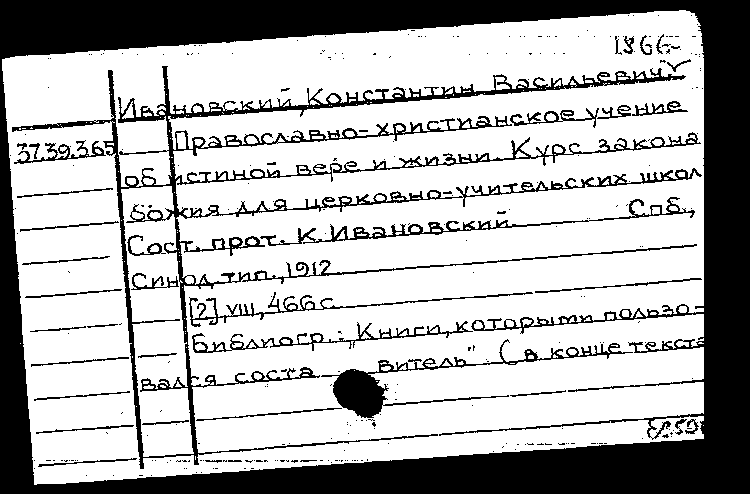 1866-
Ивановский, Константин Васильевич.
37.39.365. Православно-христианское учение
об истиной вере и жизни. Курс закона
божия для церковно-учительских школ
Сост. прот. К. Ивановский. Спб.,
Синод. тип., 1912
[2], VIII, 466 с.
Библиогр.: „Книги, которыми пользо-
вался соста витель" (в конце текста